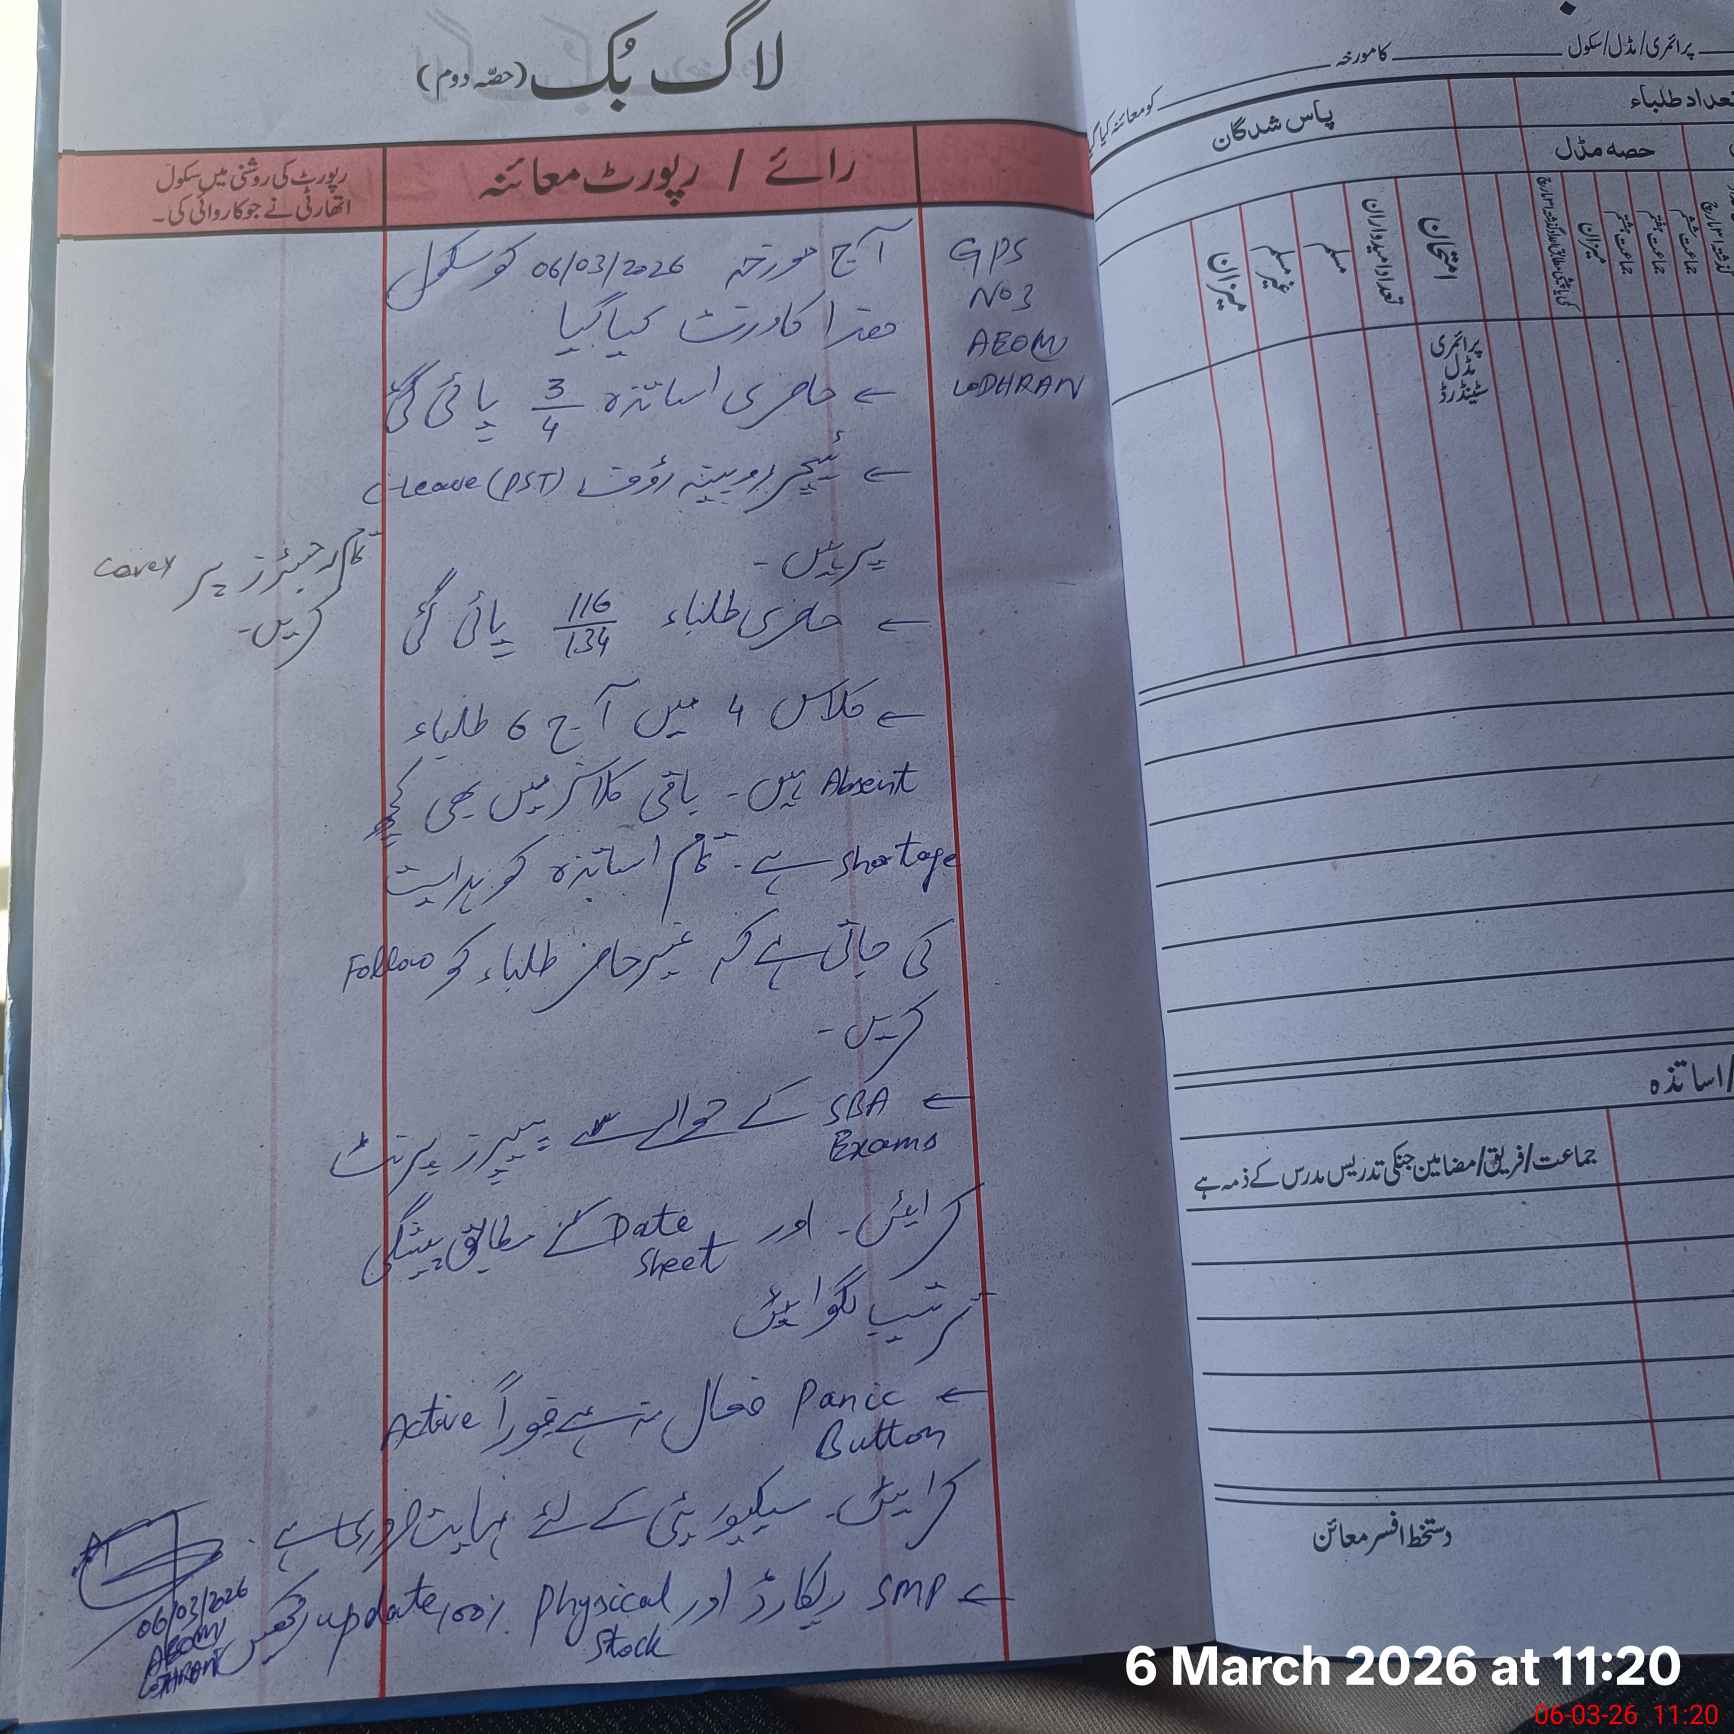 لاگ بُک (حصّہ دوم)
رائے / رپورٹ معائنہ
رپورٹ کی روشنی میں سکول
اتھارٹی نے جو کاروائی کی ۔
GPS
No 3
AEO(M)
LODHRAN
آج مورخہ 06/03/2026 کو سکول
ھذا کا وزٹ کیا گیا
← حاضری اساتذہ 3/4 پائی گئی
← ٹیچر روبینہ رؤف (PST) C-Leave
پر ہیں ۔
← حاضری طلباء 116/134 پائی گئی
← کلاس 4 میں آج 6 طلباء
Absent ہیں ۔ باقی کلاسز میں بھی کچھ
Shortage ہے ۔ تمام اساتذہ کو ہدایت
کی جاتی ہے کہ غیر حاضر طلباء کو Follow
کریں ۔
← SBA Exams کے حوالے سے پیپرز پرنٹ
کرائیں ۔ اور Date Sheet کے مطابق پیشگی
ترتیب لگوائیں
← Panic Button فعال نہ ہے فوراً Active
کرائیں۔ سیکیورٹی کے لئے نہایت ضروری ہے ۔
← SMP ریکارڈ اور Physical Stock 100% update رکھیں
تمام رجسٹرز پر Cover
کریں ۔
06/03/2026
AEO(M)
LODHRAN
پرائمری/مڈل/سکول
کا مورخہ
کو معائنہ کیا گیا
تعداد طلباء
پاس شدگان
حصہ مڈل
میزان
جماعت ہشتم
جماعت ہفتم
جماعت ششم
امتحان
تعداد امیدواران
مسلم
غیر مسلم
میزان
پرائمری
مڈل
سٹینڈرڈ
/اساتذہ
جماعت/فریق/مضامین جنکی تدریس مدرس کے ذمہ ہے
دستخط افسر معائن
6 March 2026 at 11:20
06-03-26 11:20